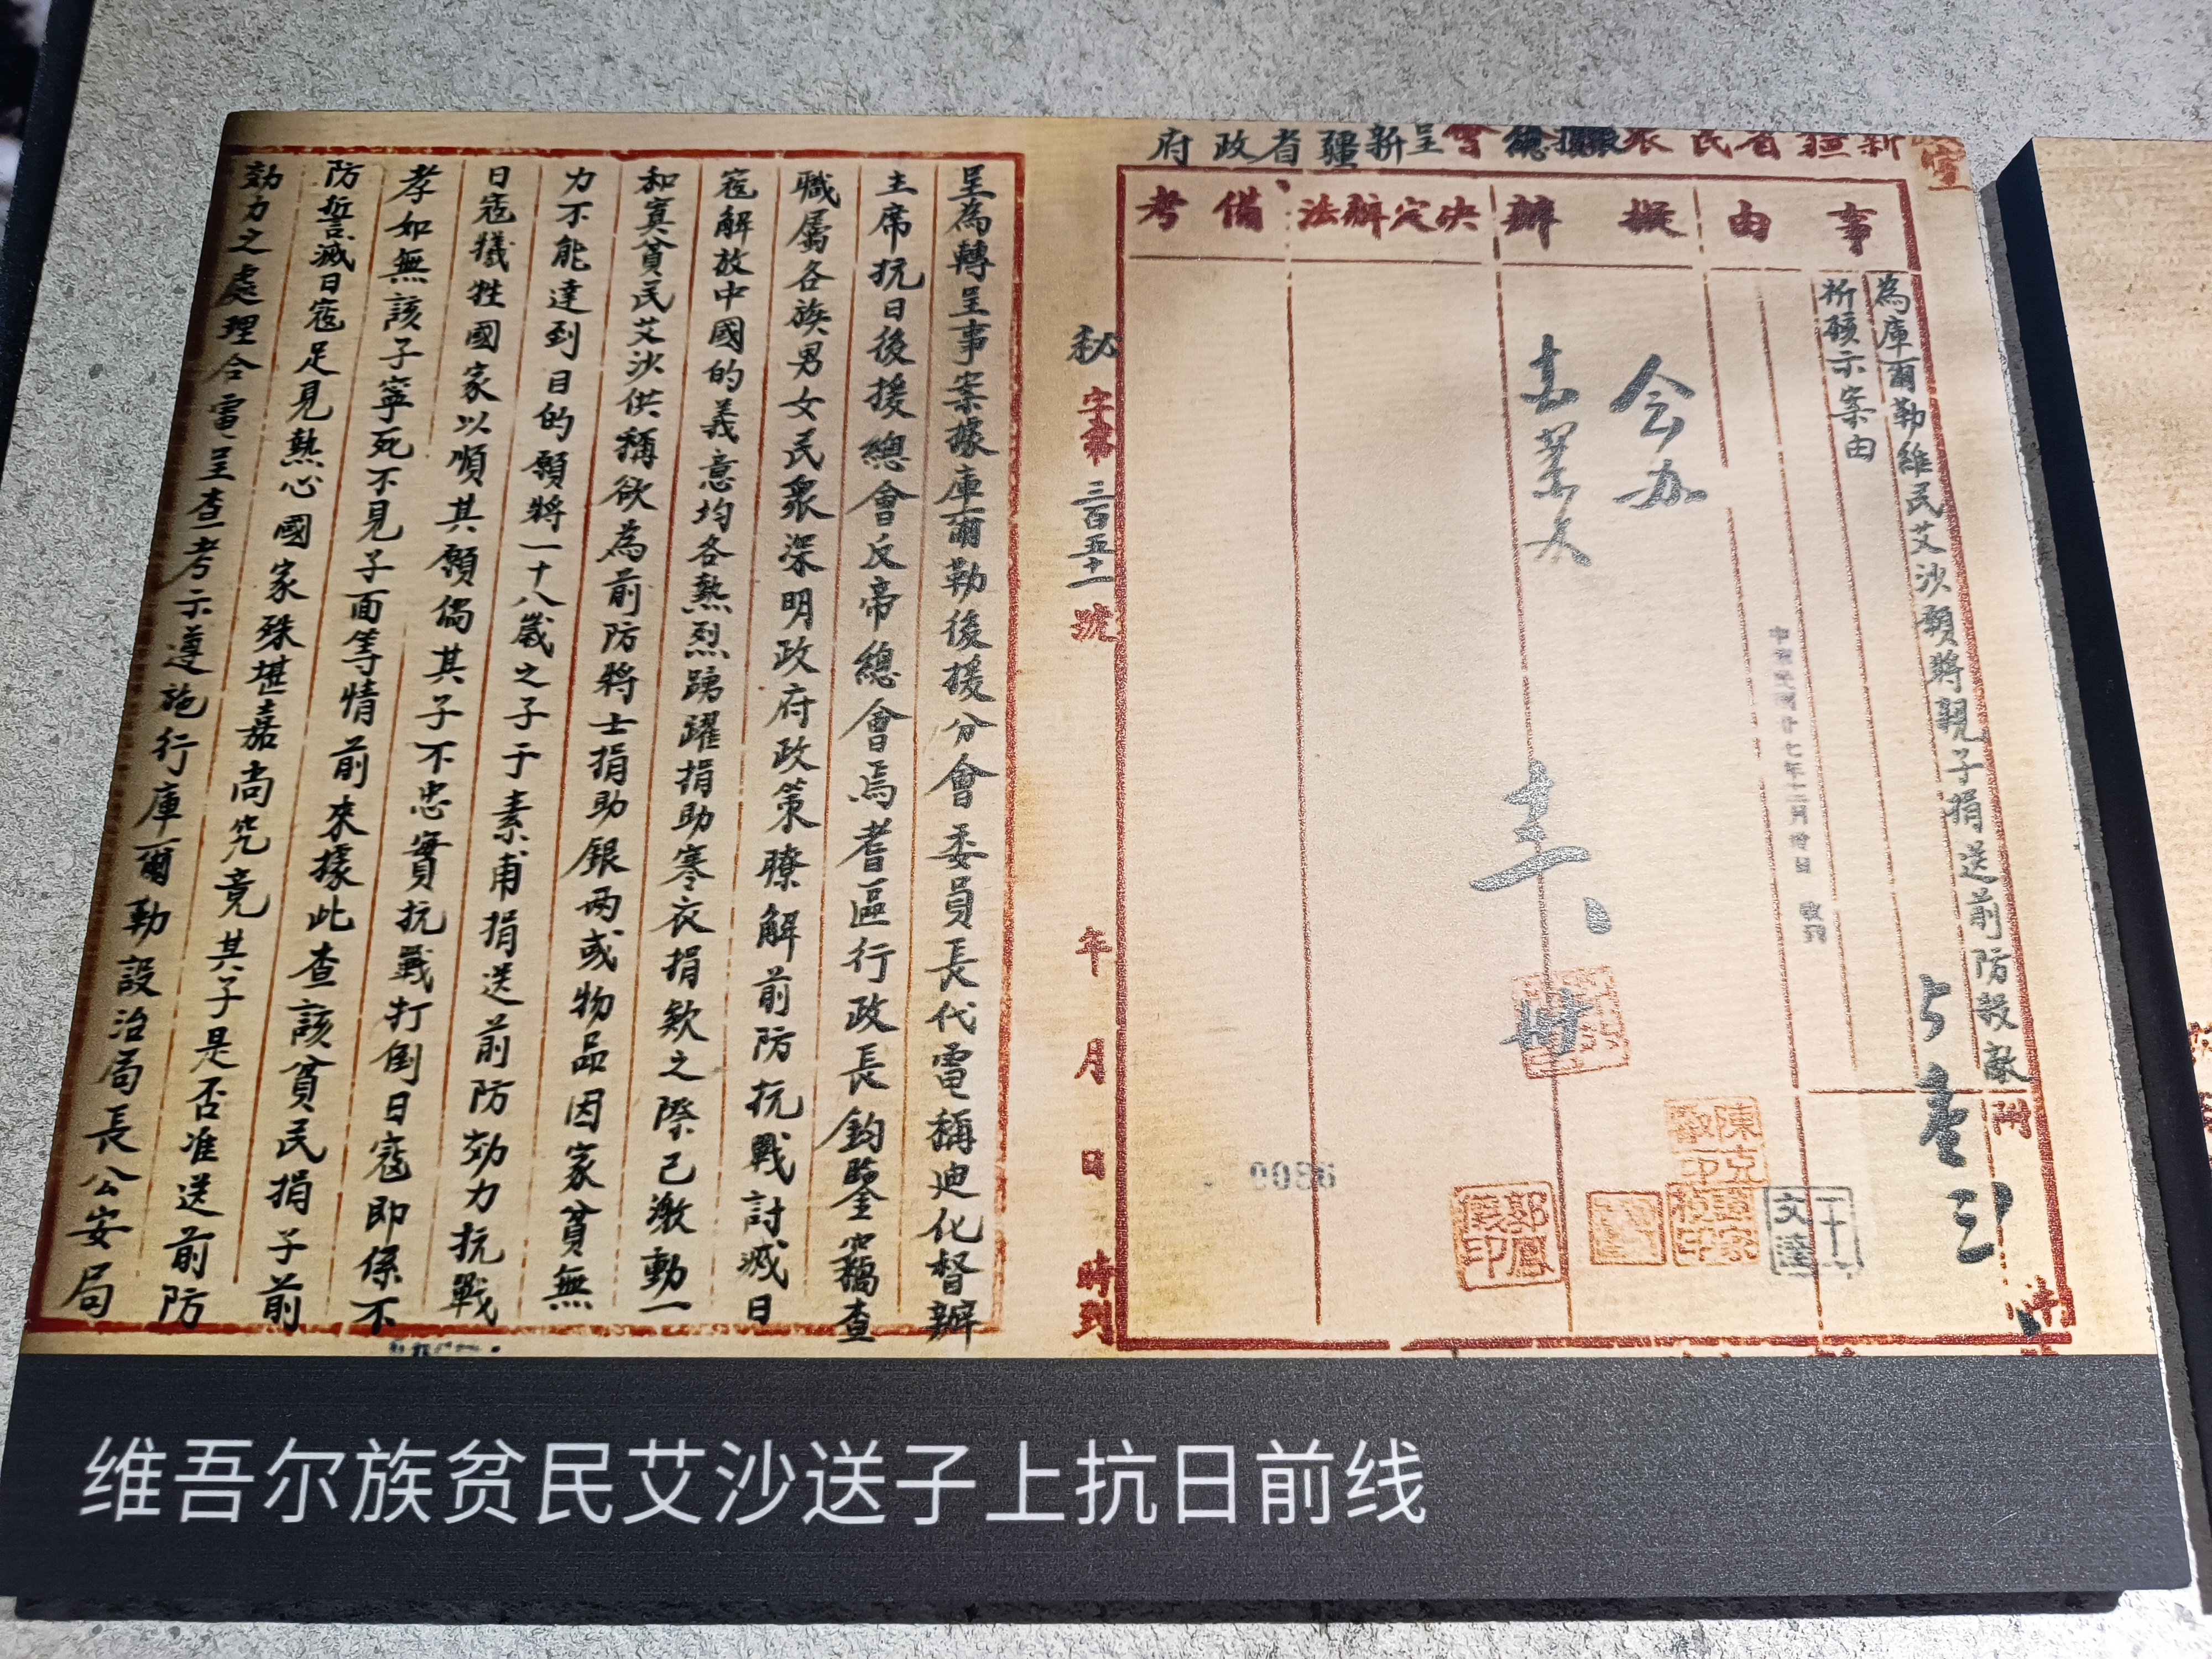 新疆省民眾總會呈新疆省政府
事由
擬辦
決定辦法
備考
為庫爾勒維民艾沙願將親子捐送前防殺敵
祈核示案由
附
件
秘字第三百五十一號
年月日時到
0086
呈為轉呈事案據庫爾勒後援分會委員長代電稱迪化督辦
主席抗日後援總會反帝總會焉耆區行政長鈞鑒竊查
職屬各族男女民眾深明政府政策瞭解前防抗戰討滅日
寇解放中國的義意均各熱烈踴躍捐助寒衣捐欵之際己激動一
和寘貧民艾沙供稱欲為前防將士捐助銀兩或物品因家貧無
力不能達到目的願將一十八歲之子于素甫捐送前防効力抗戰
日寇犧牲國家以順其願倘其子不忠實抗戰打倒日寇即係不
孝如無該子寧死不見子面等情前來據此查該貧民捐子前
防誓滅日寇足見熱心國家殊堪嘉尚究竟其子是否准送前防
効力之處理合電呈查考示遵施行庫爾勒設治局長公安局
维吾尔族贫民艾沙送子上抗日前线